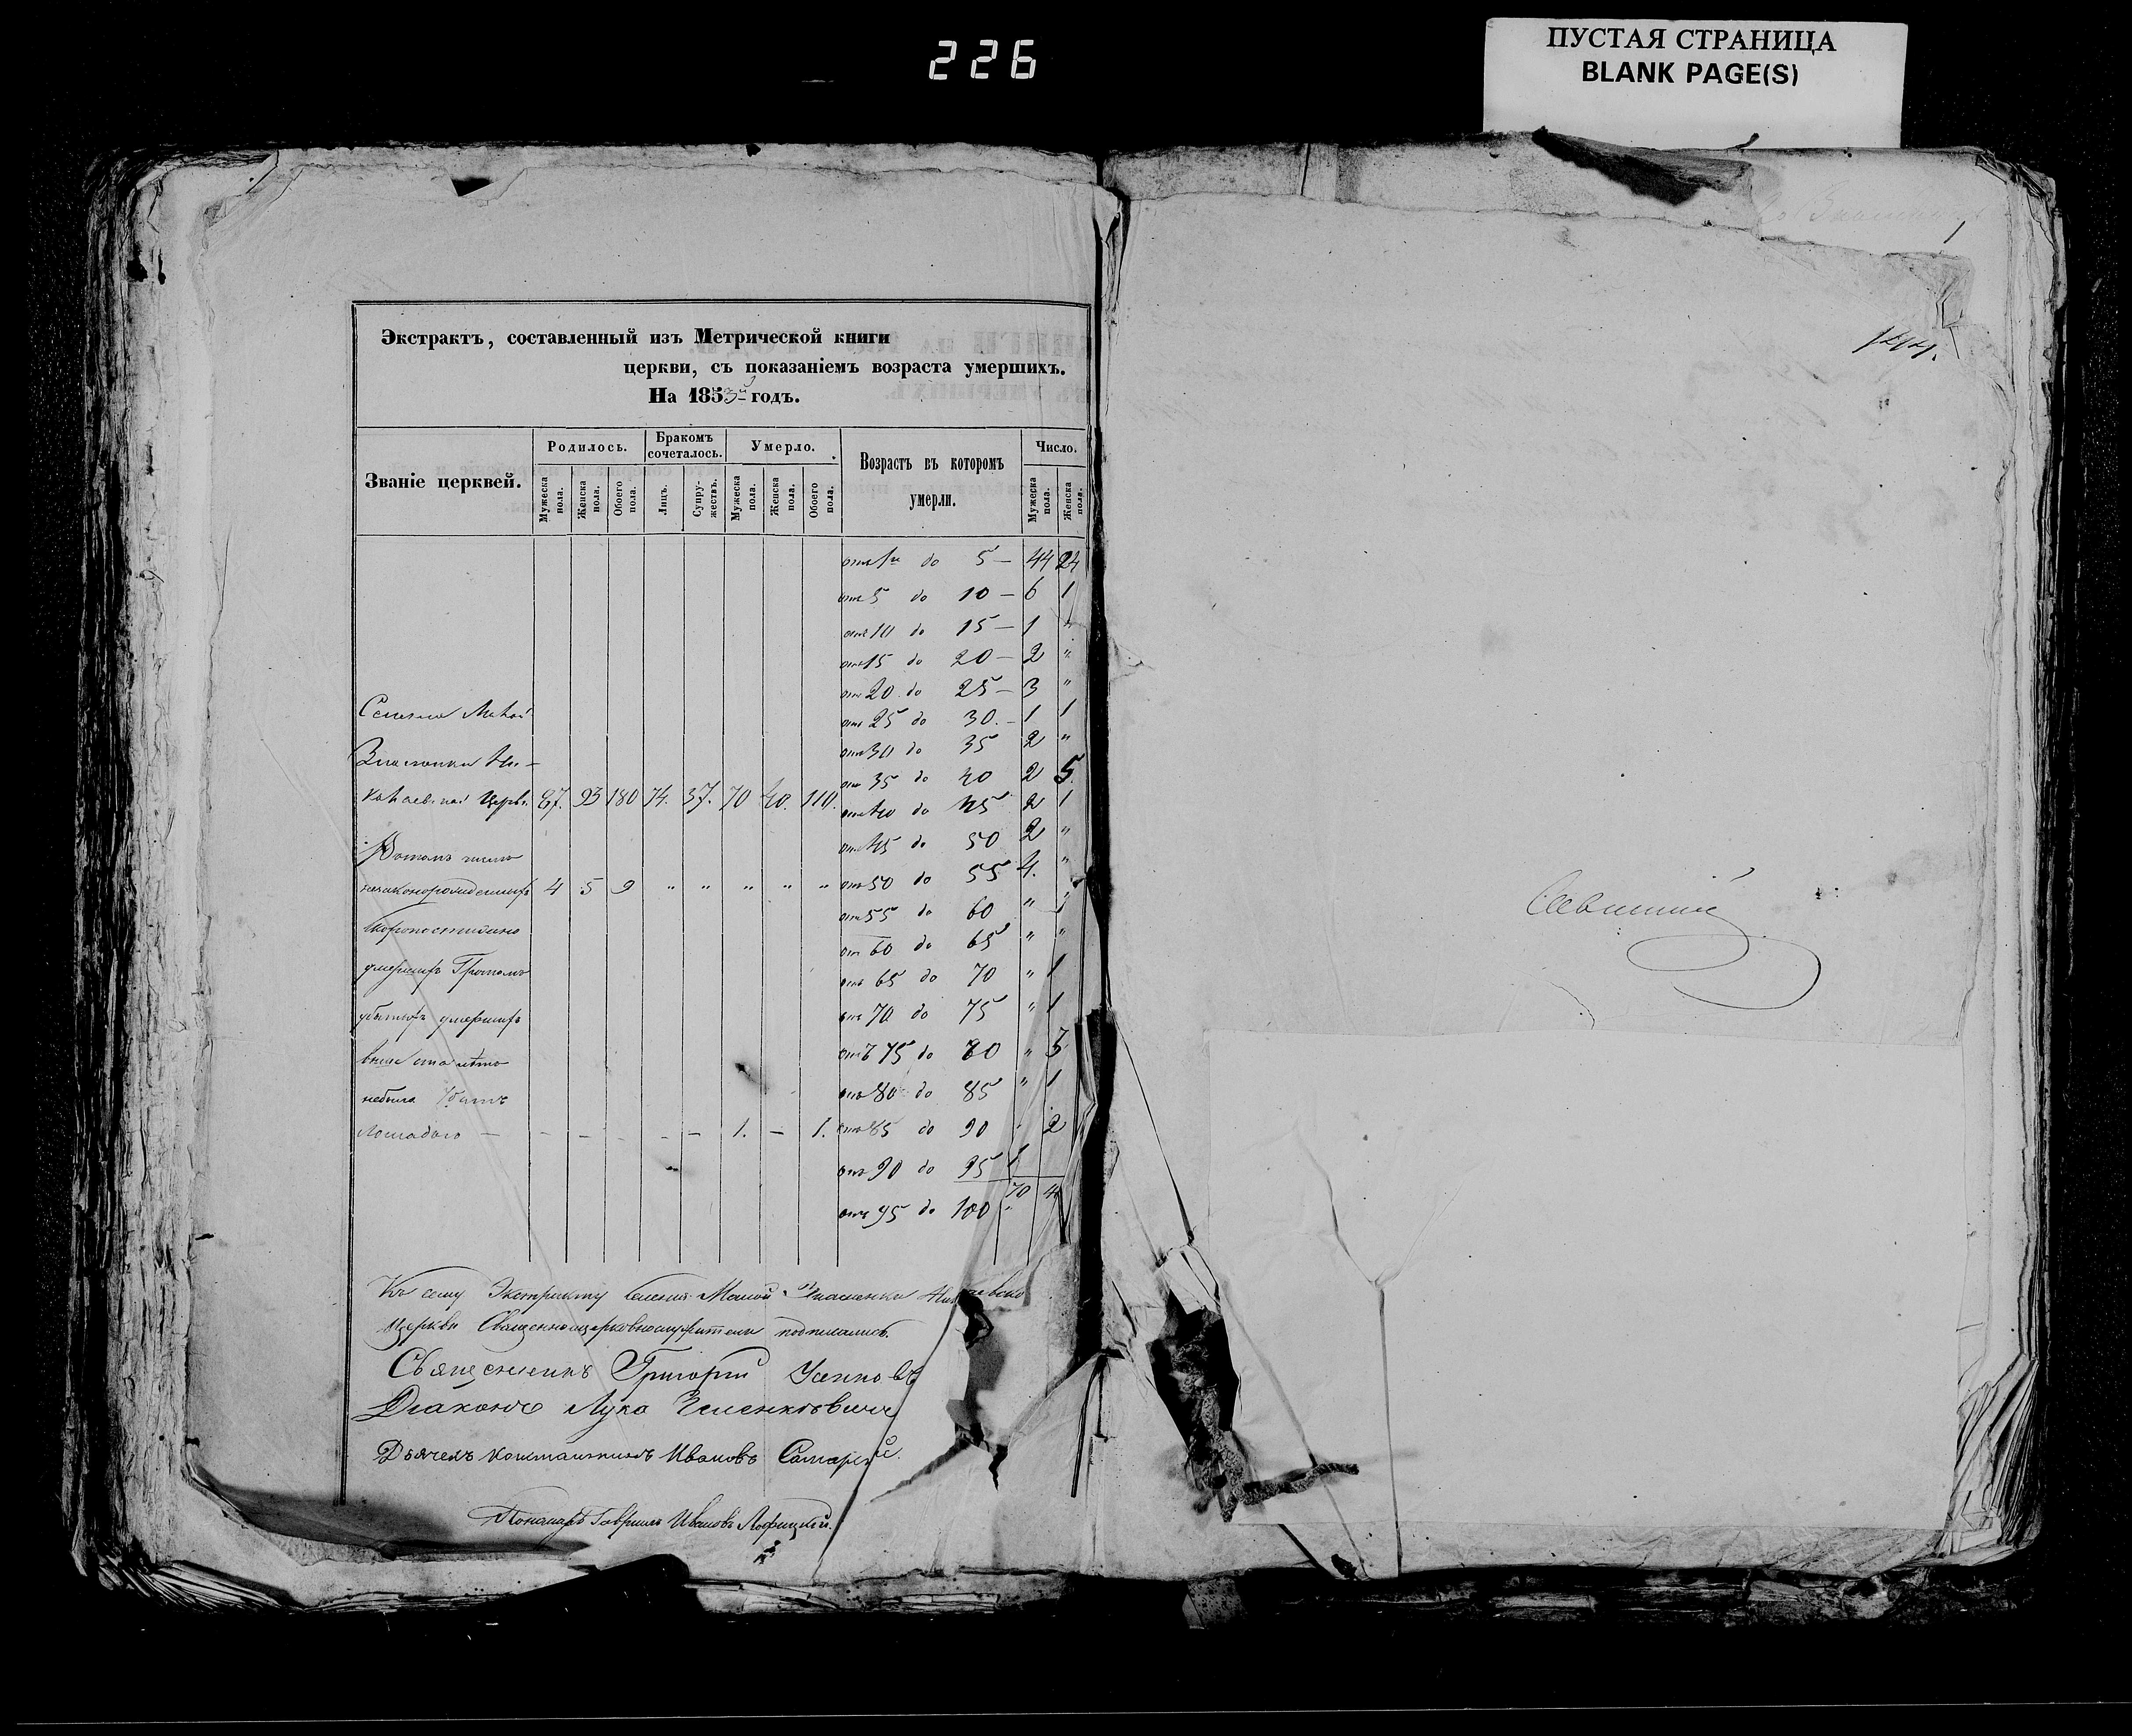 226
ПУСТАЯ СТРАНИЦА
BLANK PAGE(S)
Экстрактъ, составленный изъ Метрической книги
церкви, съ показаніемъ возраста умершихъ.
На 1853й годъ.
Званіе церквей.
Родилось.
Бракомъ сочеталось.
Умерло.
Возрастъ въ которомъ умерли.
Число.
Мужеска пола.
Женска пола.
Обоего пола.
Лицъ.
Супружествъ.
Мужеска пола.
Женска пола.
Обоего пола.
Мужеска пола.
Женска пола.
отъ 1го до 5 — 44 24
отъ 5 до 10 — 6 1
отъ 10 до 15 — 1 "
отъ 15 до 20 — 2 "
отъ 20 до 25 — 3 "
отъ 25 до 30. — 1 1
отъ 30 до 35 2 "
отъ 35 до 40 2 5
отъ 40 до 45 2 1
отъ 45 до 50 2 "
отъ 50 до 55 4. "
отъ 55 до 60 " "
от 60 до 65 " "
отъ 65 до 70 " 1
отъ 70 до 75 " 1
отъ 75 до 80 " 3
отъ 80 до 85 " 1
отъ 85 до 90 " 2
отъ 90 до 95 1
70 4
отъ 95 до 100 "
Селенія Малой
Знаменки Ни-
колаевской Церкви 87. 93 180 74. 37. 70 40. 110.
Втомъ числе
незаконорожденныхъ 4 5 9 " " " " "
скоропостижно
умершихъ Громомъ
убитыхъ умершихъ
выше ста летъ
небыло Убитъ
лошадью — - - - - — 1. — 1.
Къ сему Экстракту селенія Малой Знаменки
Церкви Священноцерковнослужители подписались.
Священникъ Григорій
Діаконъ Лука
Дьячекъ Константинъ Ивановъ
Пономарь Гавріилъ Ивановъ
1
144.